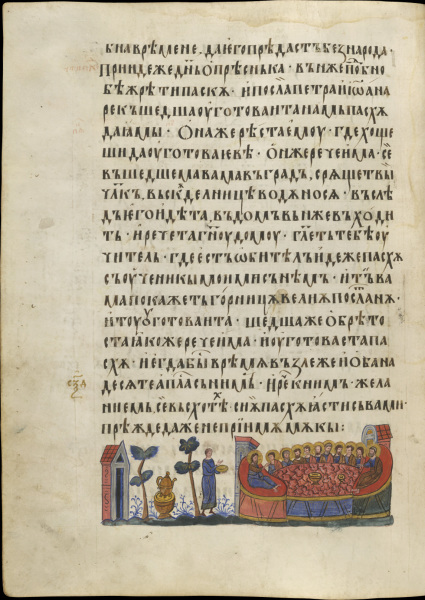 бна врѣмене. да и его прѣдастъ без народа·
Приидеже дн҃ь опрѣснька· въньже пⷣобно
бѣ жрѣти пасхѫ· и посла петра и іѡана
рекъ шедша оуготованта намь пасхѫ
да ꙗмы· она же рѣста емоу· где хоще
ши да оуготоваевѣ· онже рече има· се
въшедшема вама въ градъ, срѧщет вы
чл҃къ, въ скѫделнице водѫ носѧ· въслѣ
дъ его идѣта, въ домъ въньже въходи
ть· и речета гн҃оу домоу· гл҃еть тебѣ оу
читель· где есть ѡбитѣль идеже пасхѫ
съ оученикы моими сънѣмъ· и тъ ва
ма покажеть горницѫ велиѫ постланѫ·
и тоу оуготованта· шедша же обрѣто
ста ꙗкоже рече има· и оуготоваста па
схѫ· и егда бы врѣмѧ възлеже и оба на
десѧте апⷭла съ нимь· и рⷱе к ним· жела
ниемь, въсхотⷯѣ сиѫ пасхѫ ꙗсти съ вами·
прѣжде даже не приимѫ мѫкы :